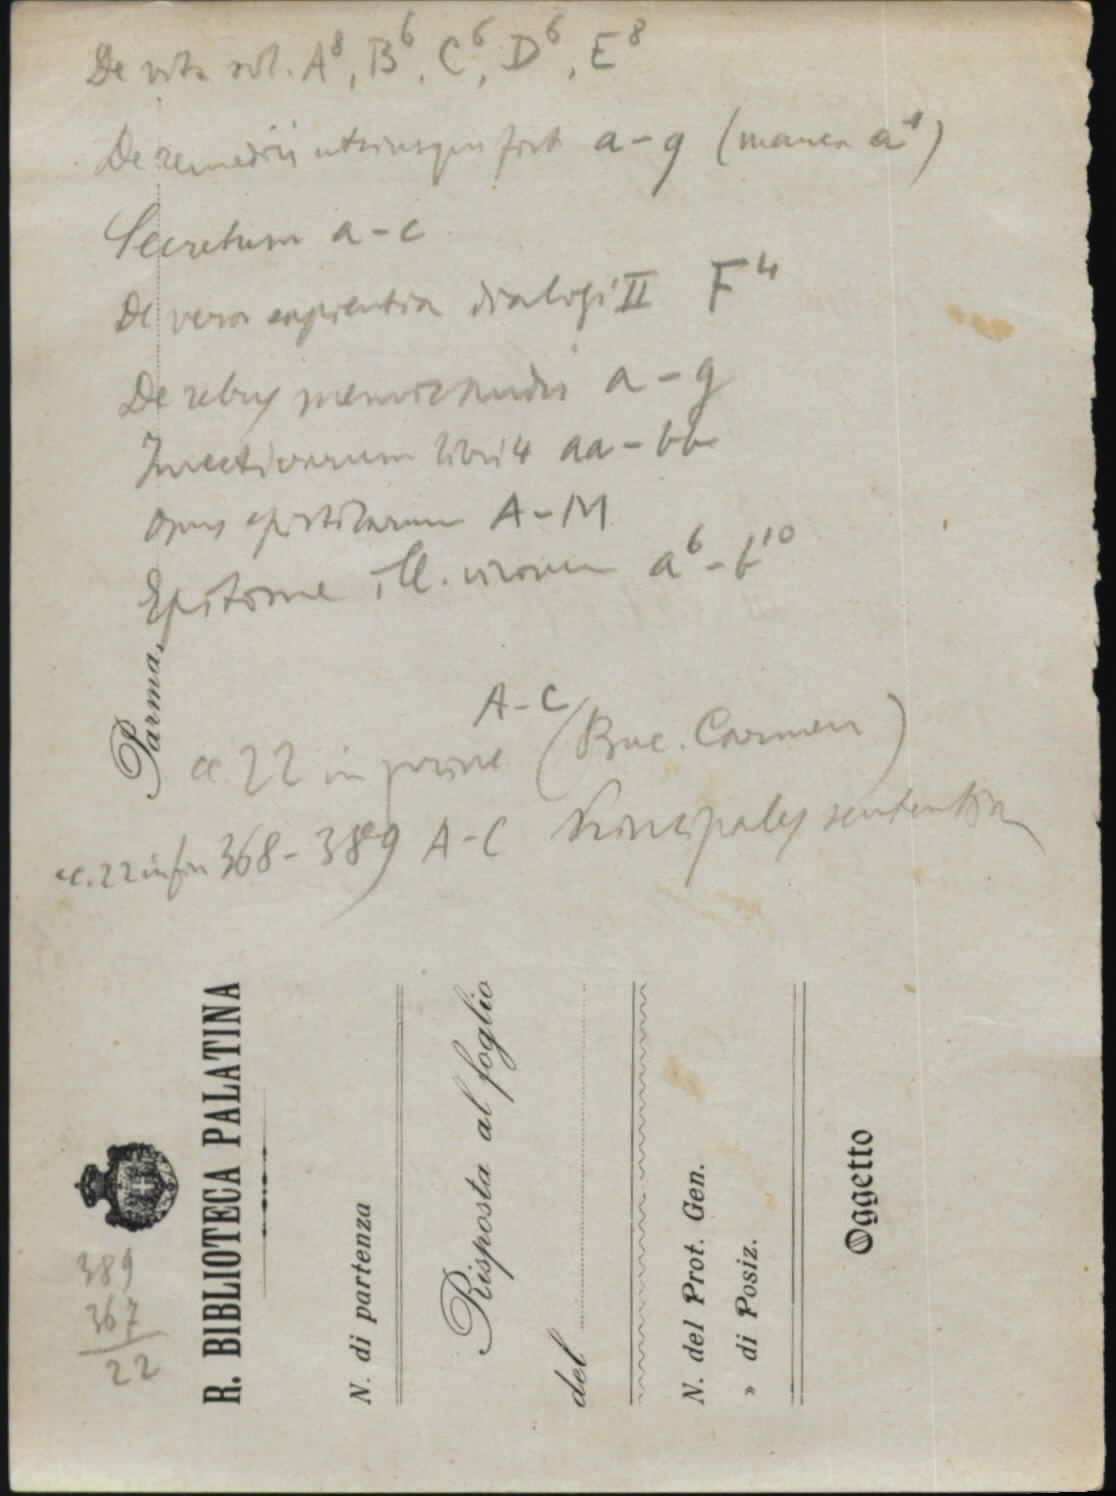 De vita sol. A⁸, B⁶, C⁶, D⁶, E⁸
De remediis utriusque fort a-g (manca a¹)
Secretum a-c
De vera sapientia dialogi II F⁴
De rebus memorandis a-g
Invectivarum libri 4 aa-bb
Opus epistolarum A-M
Epitome ill. virorum a⁶-b¹⁰
A-C
cc. 22 in princ. (Buc. Carmen)
cc. 22 in fin 368-389 A-C Principales sententiae
Parma,
R. BIBLIOTECA PALATINA
N. di partenza
Risposta al foglio
del
N. del Prot. Gen.
» di Posiz.
Oggetto
389
367
22